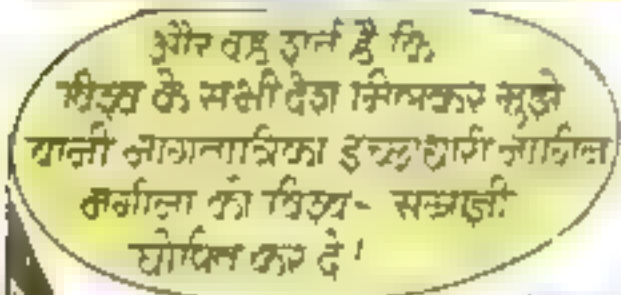 और वह शर्त है कि
विश्व के सभी देश मिलकर मुझे
यानी नागतांत्रिका इच्छाधारी नागिन
नगीना को विश्व- सम्राज्ञी
घोषित कर दें!